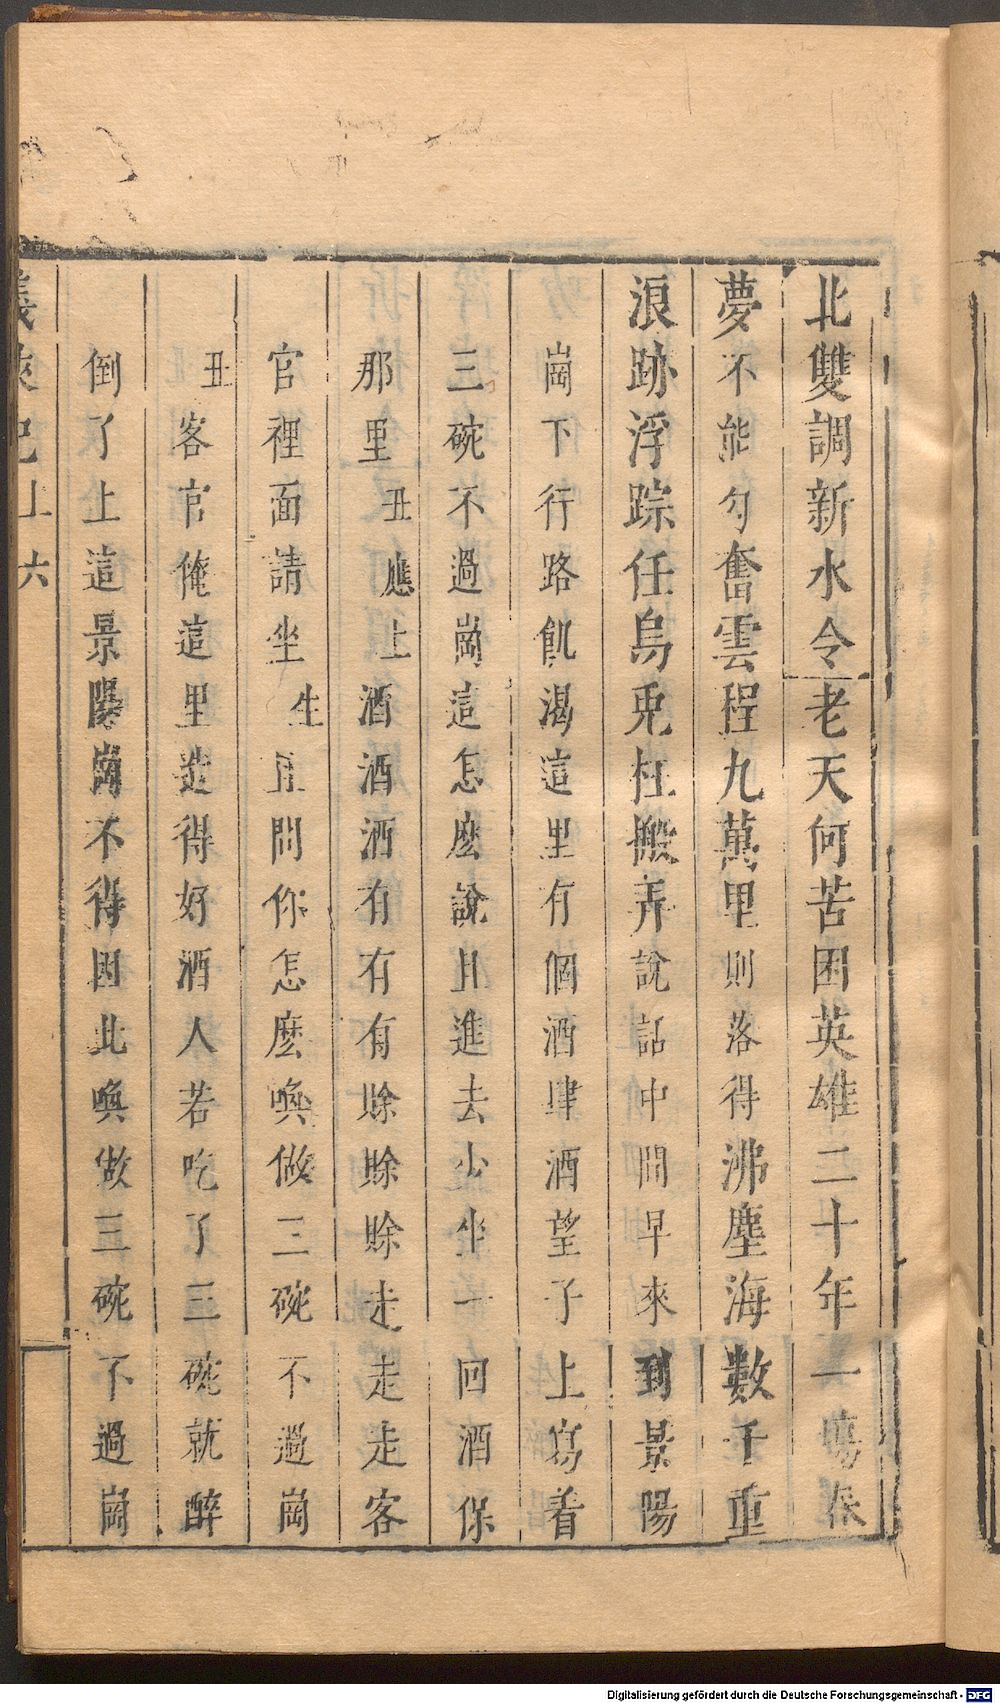 北雙調新水令老天何苦困英雄二十年一場春
夢不能勾奮雲程九萬里則落得沸塵海數千重
浪跡浮踪任烏兎枉搬弄說話中間早來到景陽
崗下行路飢渴這里有個酒肆酒望子上寫着
三碗不過崗這怎麽說且進去少坐一回酒保
那里丑應上酒酒酒有有有賒賒賒走走走客
官裡面請坐生且問你怎麽喚做三碗不過崗
丑客官俺這里造得好酒人若吃了三碗就醉
倒了上這景陽崗不得因此喚做三碗不過崗
義俠記上 六
Digitalisierung gefördert durch die Deutsche Forschungsgemeinschaft - DFG